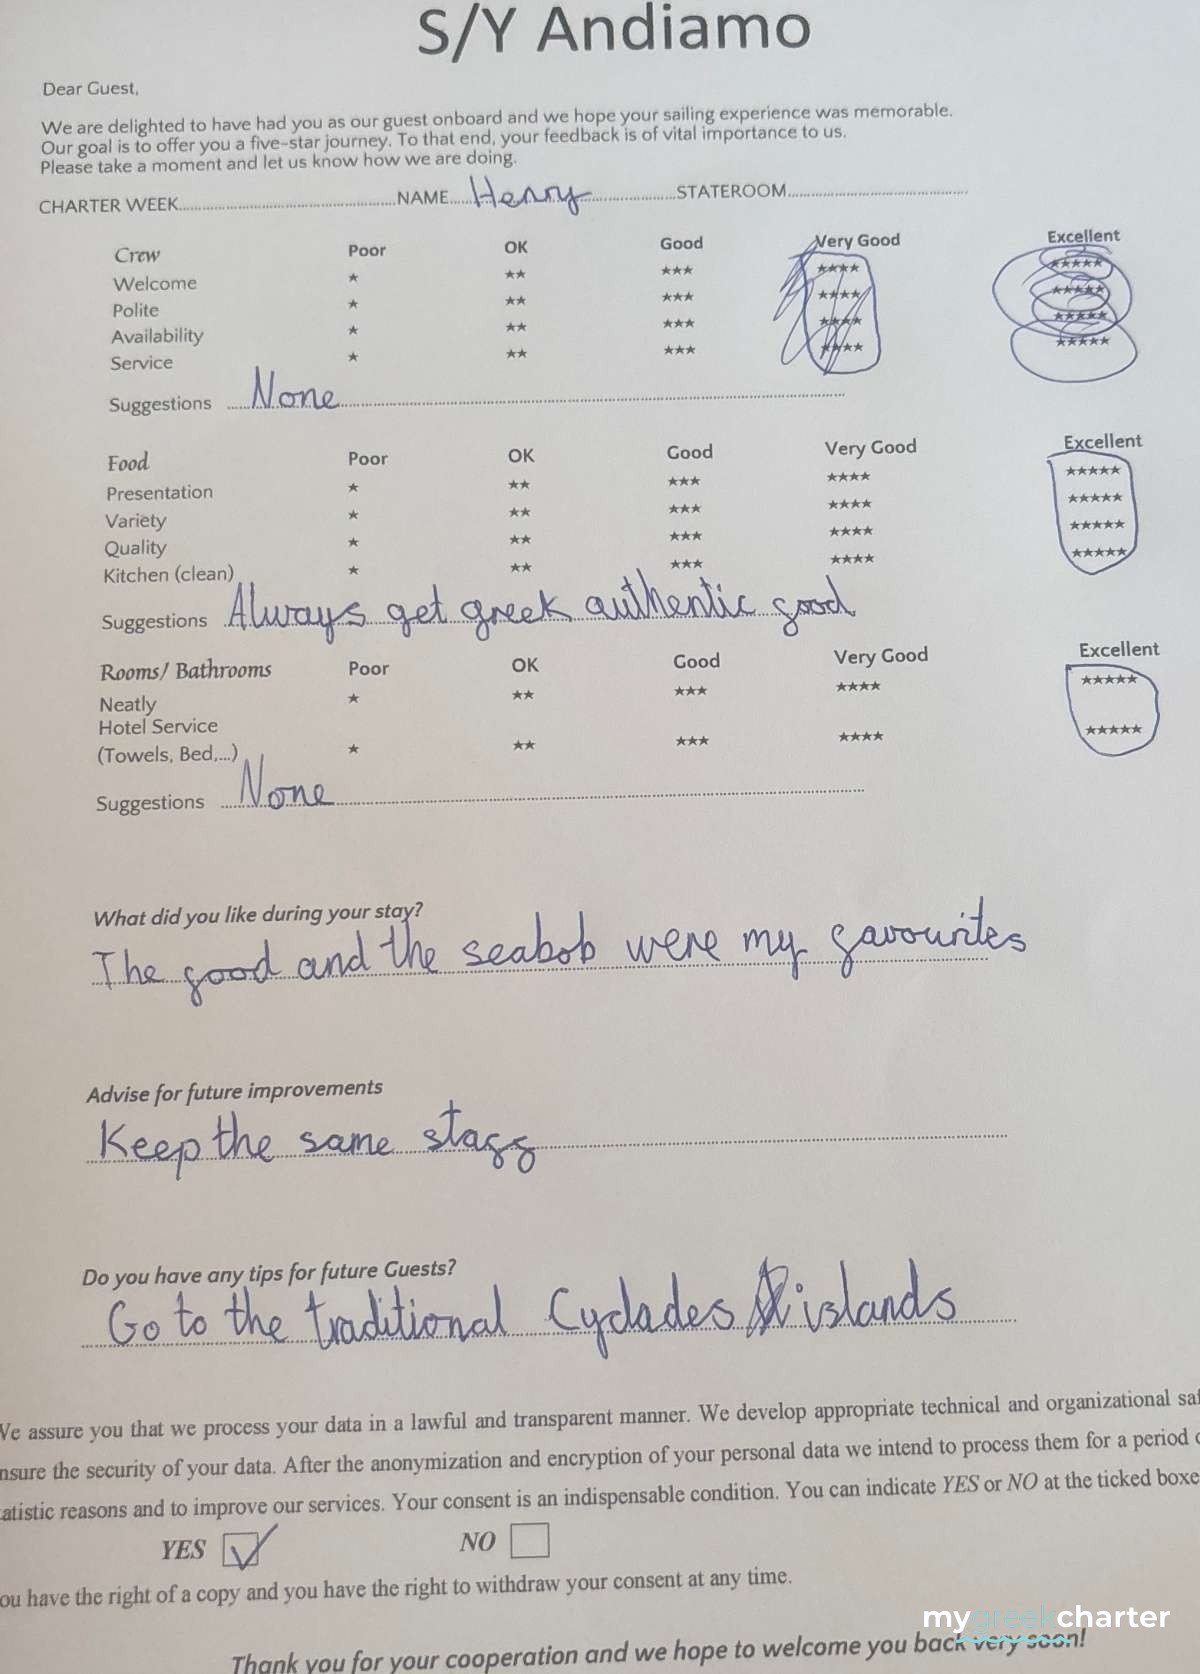 S/Y Andiamo
Dear Guest,
We are delighted to have had you as our guest onboard and we hope your sailing experience was memorable.
Our goal is to offer you a five-star journey. To that end, your feedback is of vital importance to us.
Please take a moment and let us know how we are doing.
CHARTER WEEK NAME Henry STATEROOM
Crew Poor OK Good Very Good Excellent
Welcome ★ ★★ ★★★ ★★★★ ★★★★★
Polite ★ ★★ ★★★ ★★★★ ★★★★★
Availability ★ ★★ ★★★ ★★★★ ★★★★★
Service ★ ★★ ★★★ ★★★★ ★★★★★
Suggestions None
Food Poor OK Good Very Good Excellent
Presentation ★ ★★ ★★★ ★★★★ ★★★★★
Variety ★ ★★ ★★★ ★★★★ ★★★★★
Quality ★ ★★ ★★★ ★★★★ ★★★★★
Kitchen (clean) ★ ★★ ★★★ ★★★★ ★★★★★
Suggestions Always get greek authentic food
Rooms/ Bathrooms Poor OK Good Very Good Excellent
Neatly ★ ★★ ★★★ ★★★★ ★★★★★
Hotel Service
(Towels, Bed,...) ★ ★★ ★★★ ★★★★ ★★★★★
Suggestions None
What did you like during your stay?
The food and the seabob were my favourites
Advise for future improvements
Keep the same staff
Do you have any tips for future Guests?
Go to the traditional Cyclades islands
We assure you that we process your data in a lawful and transparent manner. We develop appropriate technical and organizational saf
nsure the security of your data. After the anonymization and encryption of your personal data we intend to process them for a period o
atistic reasons and to improve our services. Your consent is an indispensable condition. You can indicate YES or NO at the ticked boxe
YES NO
ou have the right of a copy and you have the right to withdraw your consent at any time.
mygreekcharter
Thank you for your cooperation and we hope to welcome you back very soon!